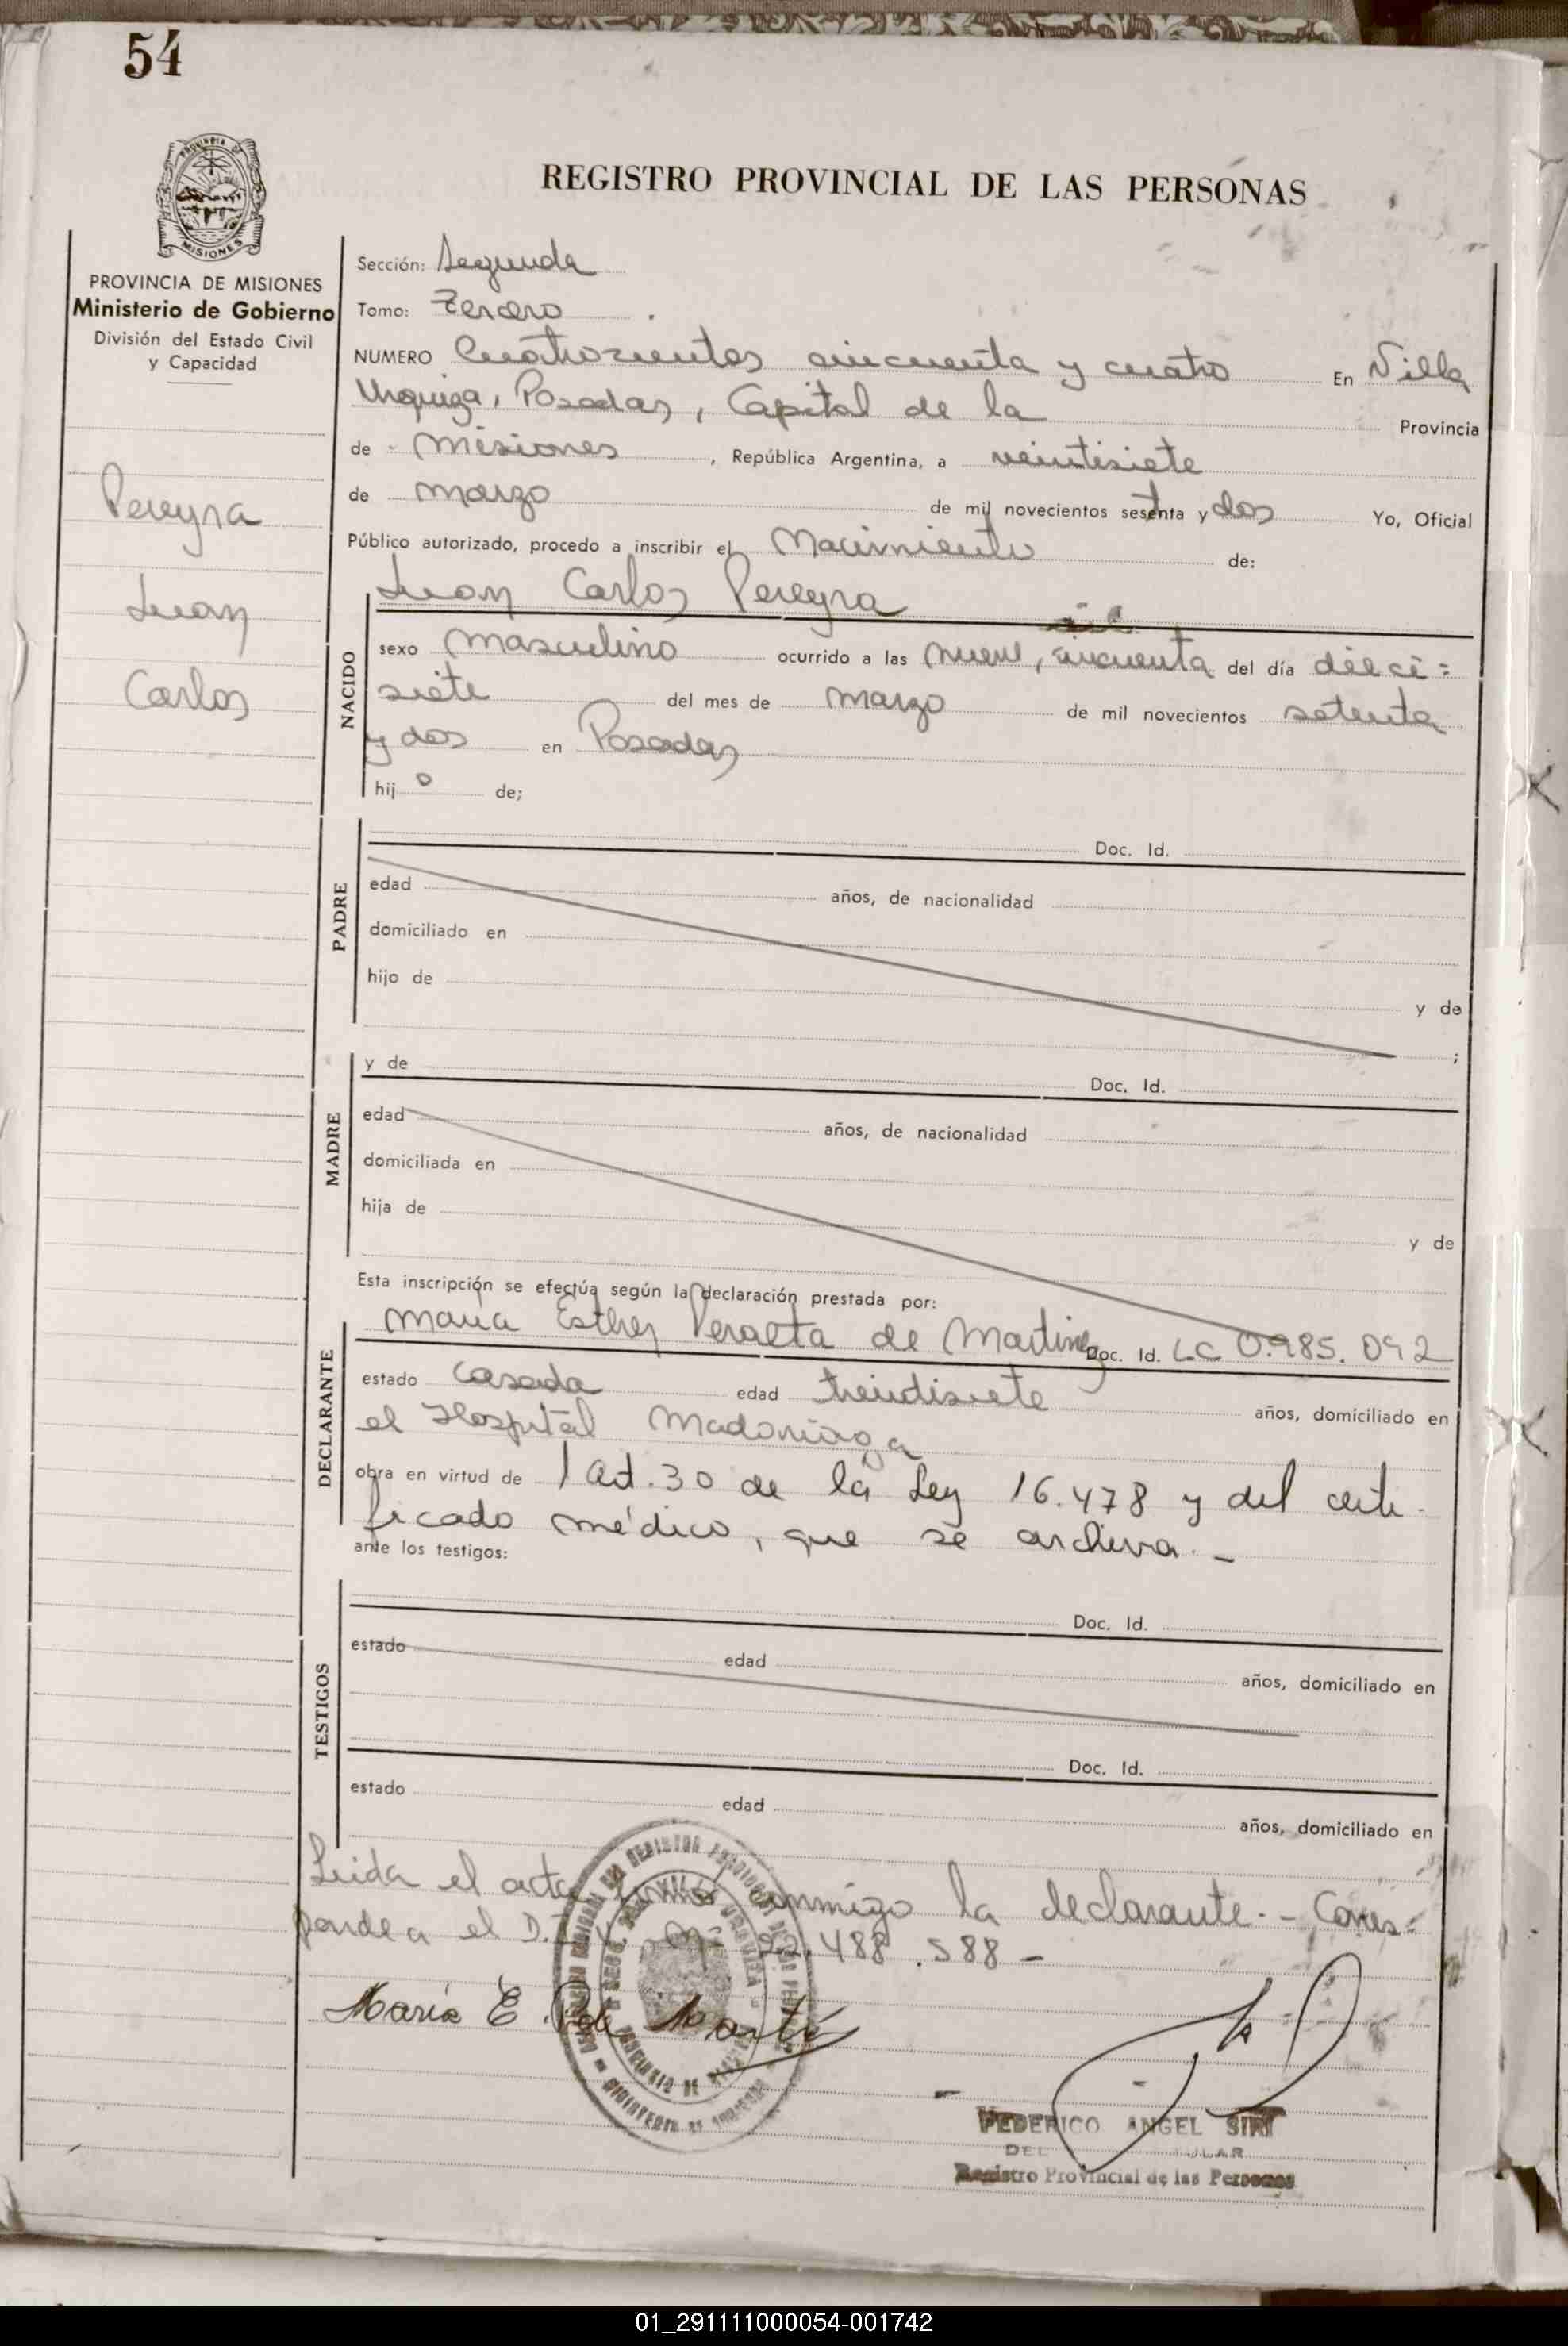 54
PROVINCIA DE
MISIONES
REGISTRO PROVINCIAL DE LAS PERSONAS
PROVINCIA DE MISIONES
Ministerio de Gobierno
División del Estado Civil
y Capacidad
Pereyra
Juan
Carlos
Sección: Segunda
Tomo: Tercero
NUMERO Cuatrocientos cincuenta y cuatro En Villa
Urquiza, Posadas, Capital de la Provincia
de Misiones, República Argentina, a veintisiete
de marzo de mil novecientos setenta y dos Yo, Oficial
Público autorizado, procedo a inscribir el Nacimiento de:
Juan Carlos Pereyra
NACIDO
sexo masculino ocurrido a las nueve, cincuenta del día dieci=
siete del mes de marzo de mil novecientos setenta
y dos en Posadas
hijo de;
PADRE
Doc. Id.
edad años, de nacionalidad
domiciliado en
hijo de y de
;
MADRE
y de Doc. Id.
edad años, de nacionalidad
domiciliada en
hija de y de
Esta inscripción se efectúa según la declaración prestada por:
DECLARANTE
María Esther Peralta de Martinez Doc. Id. LC 0.985.092
estado casada edad treindisiete años, domiciliado en
el Hospital Madariaga
obra en virtud de l art. 30 de la Ley 16.478 y del certi-
ficado médico, que se archiva.-
ante los testigos:
TESTIGOS
Doc. Id.
estado edad años, domiciliado en
Doc. Id.
estado edad años, domiciliado en
Leida el acta firmó conmigo la declarante.- Corres=
ponde a el D. 22.488.588-
María E P de Martí
FEDERICO ANGEL SIRI
Registro Provincial de las Personas
01_291111000054-001742